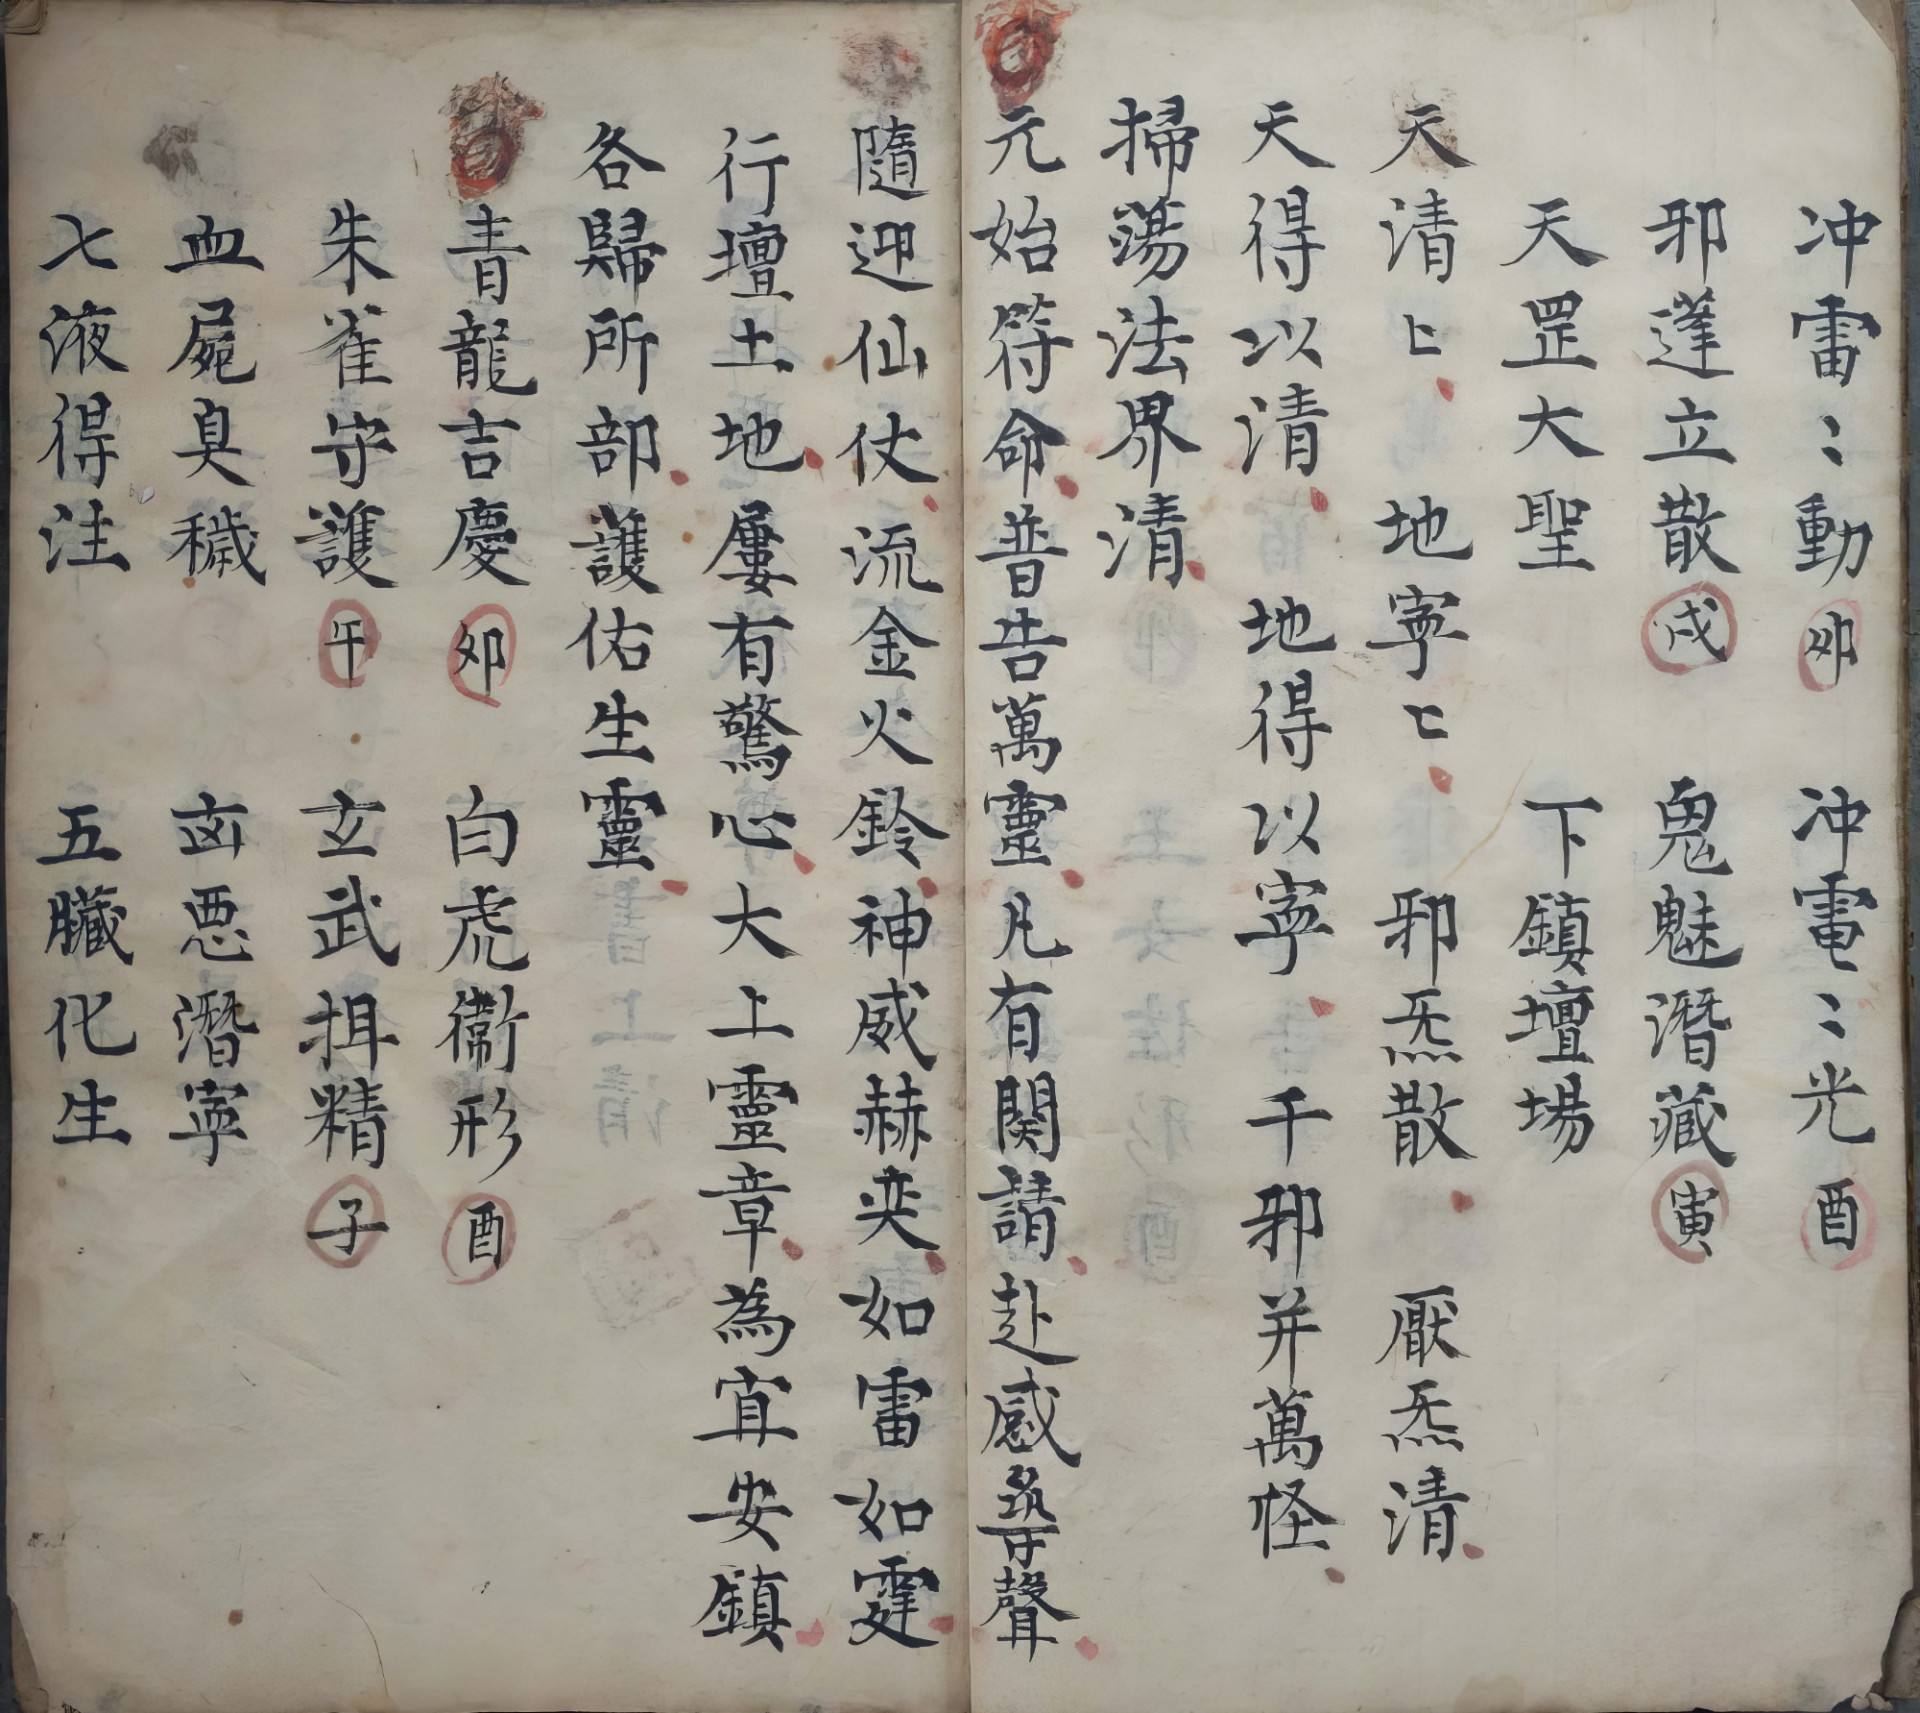 冲雷〻動卯 冲電〻光酉
邪蓬立散戌 鬼魅潛藏寅
天罡大聖 下鎮壇場
天清〻 地寧〻 邪炁散 厭炁清
天得以清 地得以寧 千邪并萬怪
掃蕩法界清
元始符命普告萬靈凡有関請赴感尋聲
隨迎仙仗流金火鈴神威赫奕如雷如霆
行壇土地屢有驚心大上靈章為宜安鎮
各歸所部護佑生靈
青龍吉慶卯 白虎衞形酉
朱雀守護午 玄武揖精子
血屍臭穢 㐫悪潛寧
七液得注 五臟化生